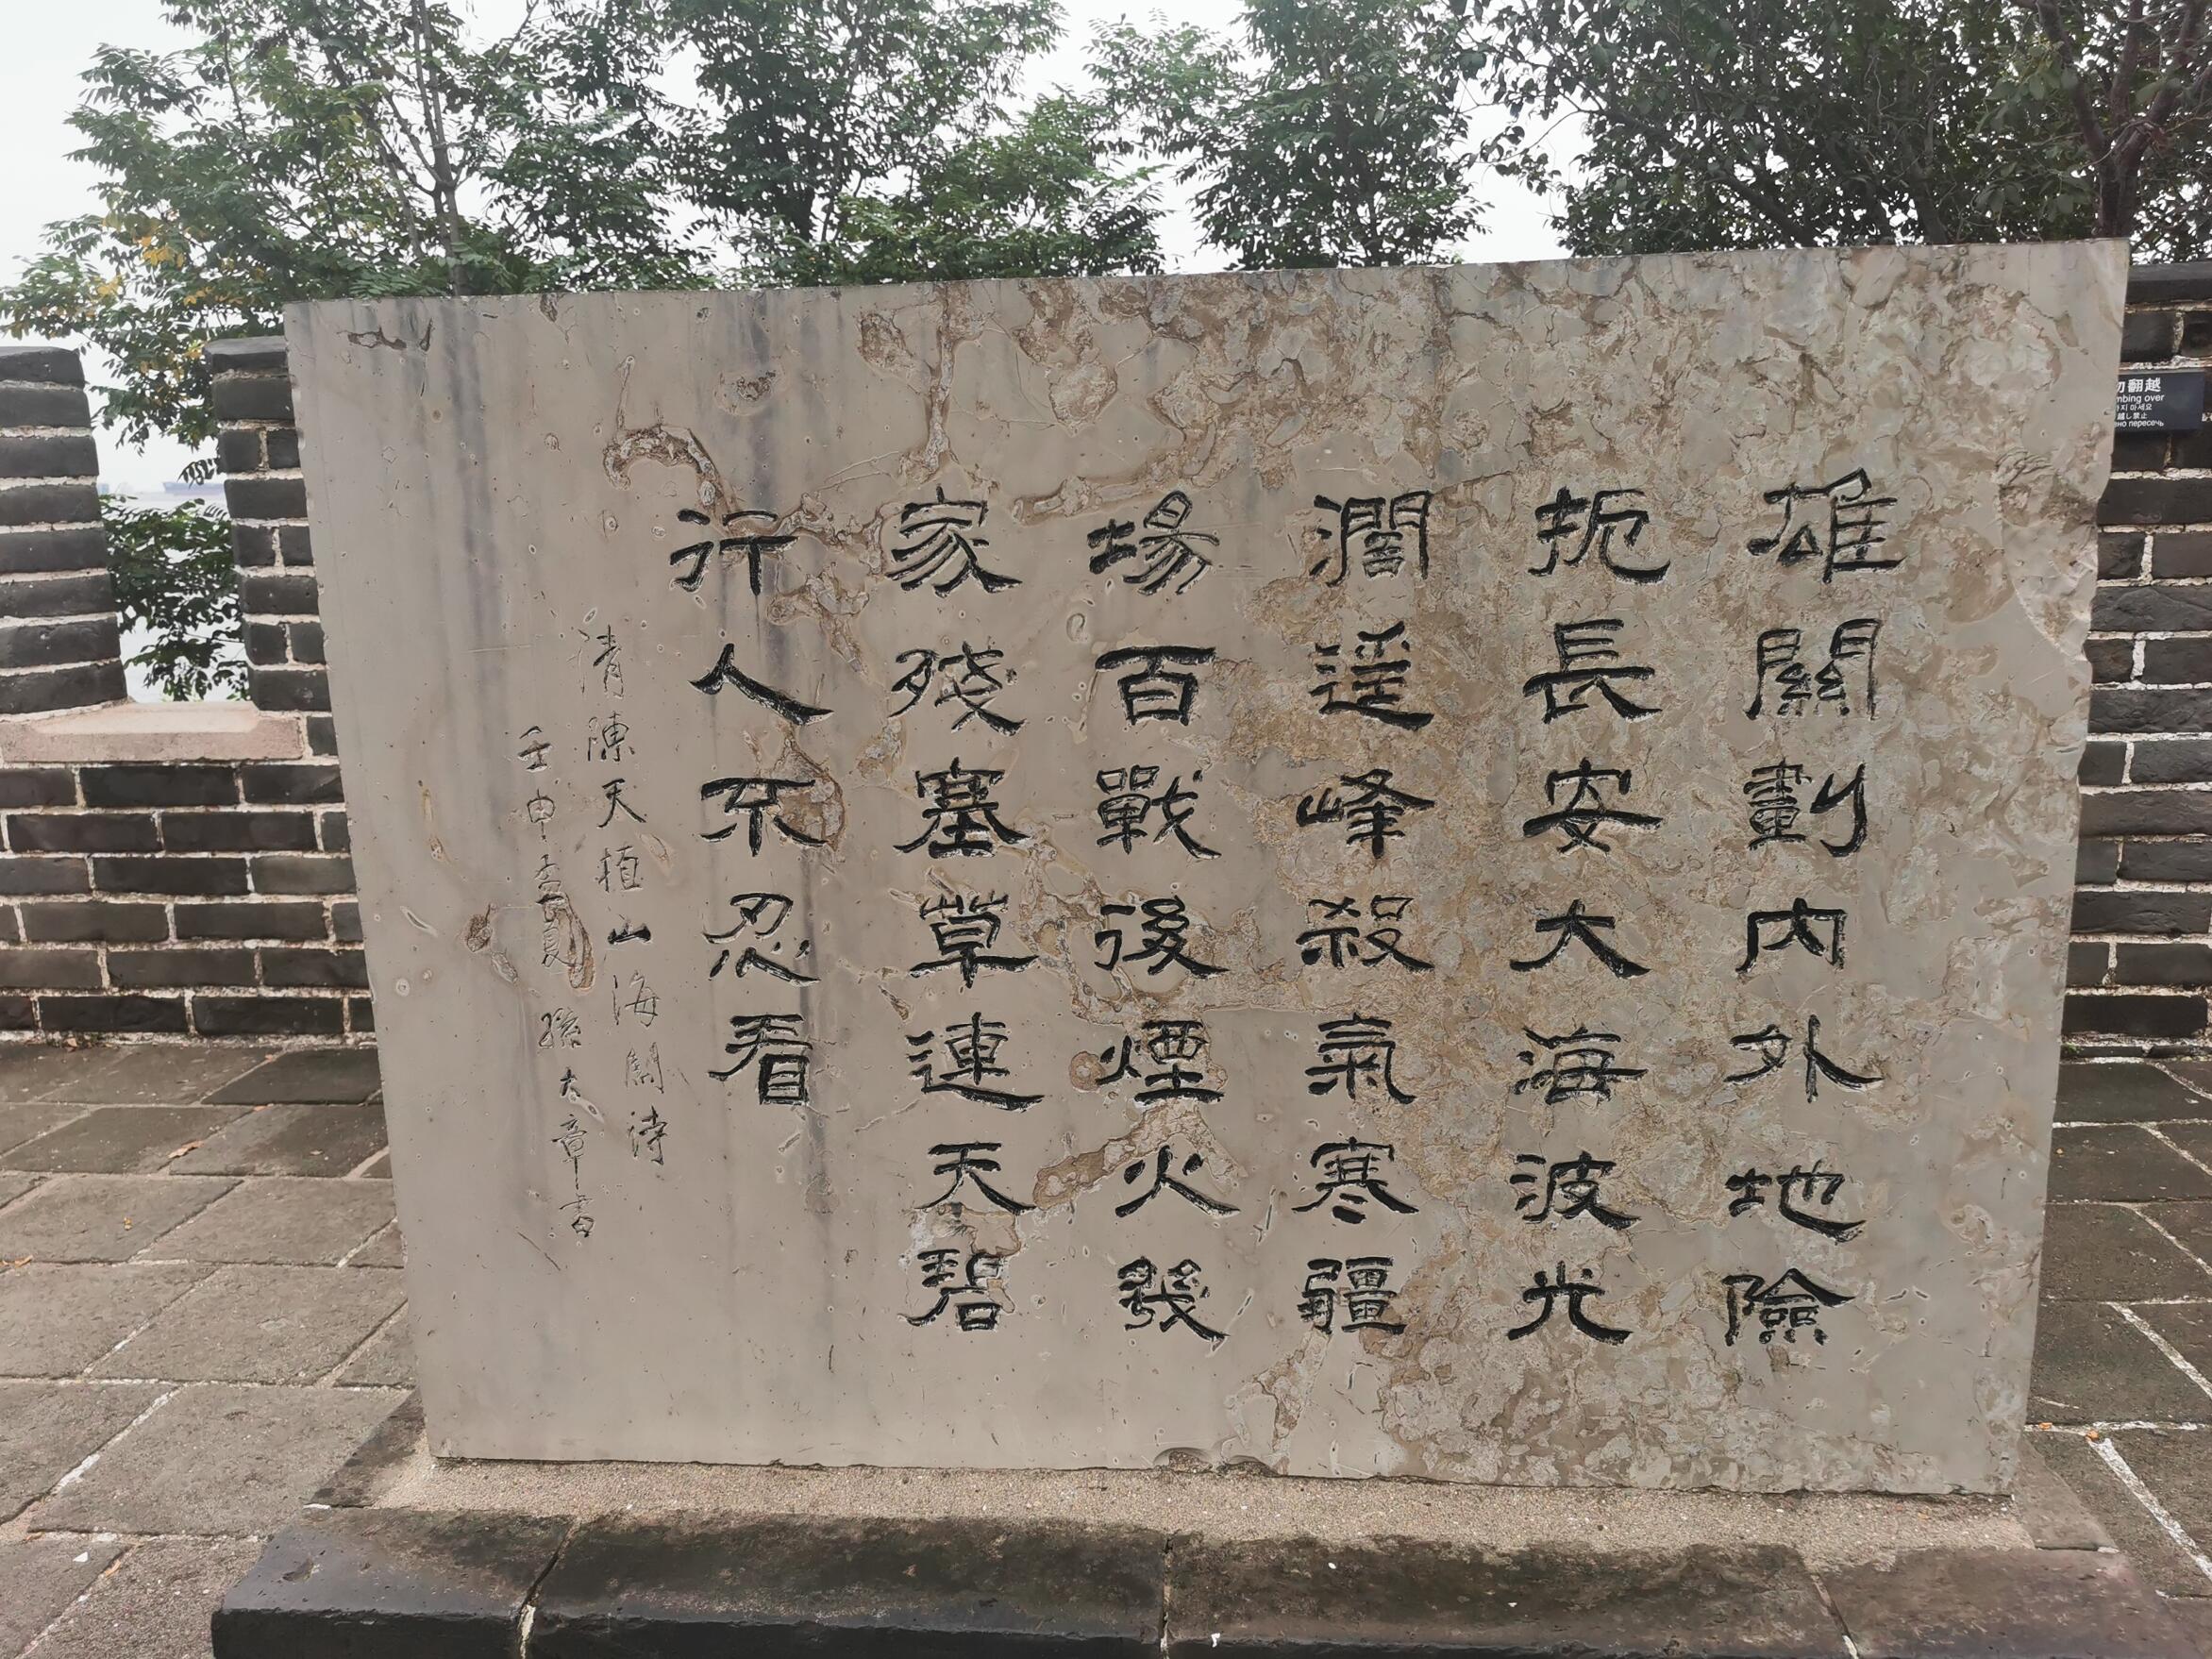 雄關劃內外地險
扼長安大海波光
濶遥峰殺氣寒疆
場百戰後煙火幾
家殘塞草連天碧
行人不忍看
清陳天植山海關詩
壬申孟夏 孫大章書
勿翻越
mbing over
지 마세요
越し禁止
но пересечь